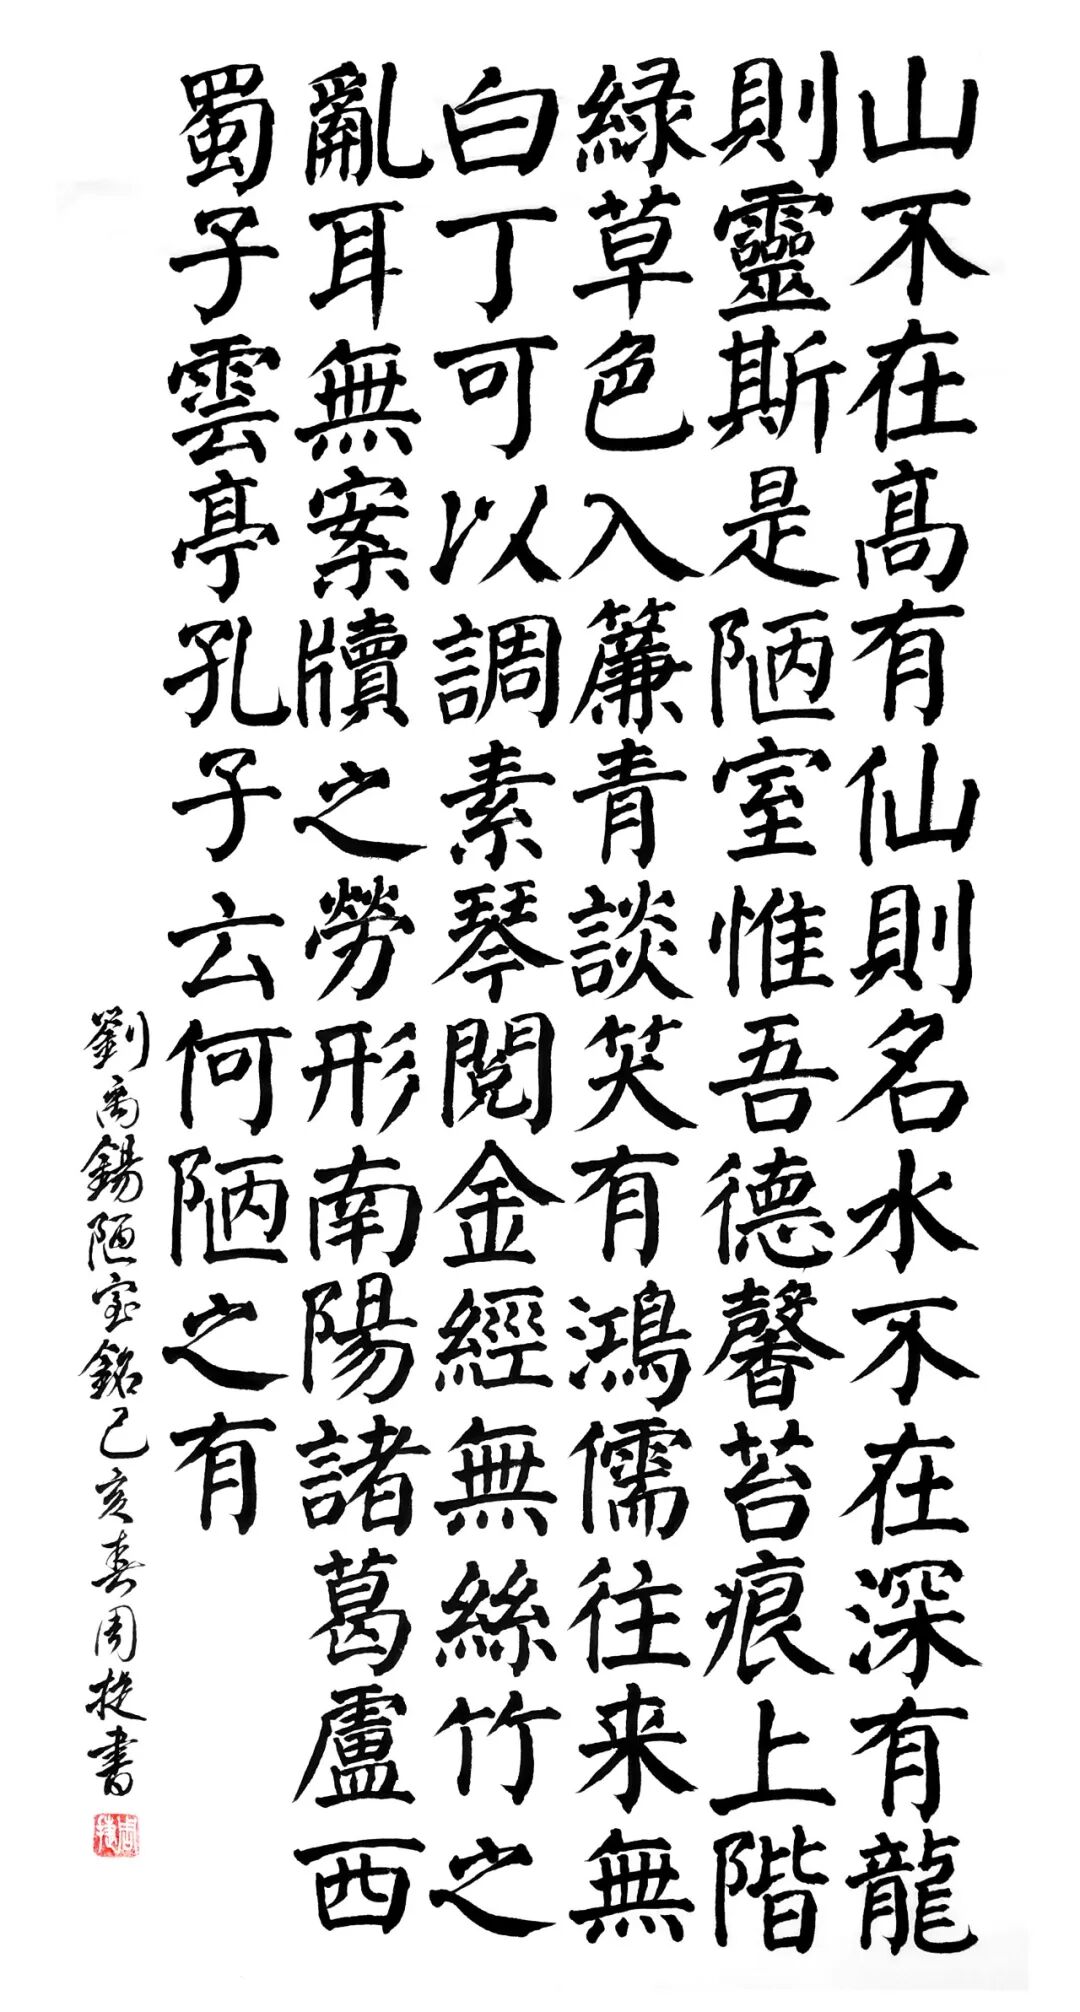 山不在高有仙則名水不在深有龍
則靈斯是陋室惟吾德馨苔痕上階
緑草色入簾青談笑有鴻儒往来無
白丁可以調素琴閱金經無絲竹之
亂耳無案牘之勞形南陽諸葛盧西
蜀子雲亭孔子云何陋之有
劉禹錫陋室銘己亥春周捷書
周捷